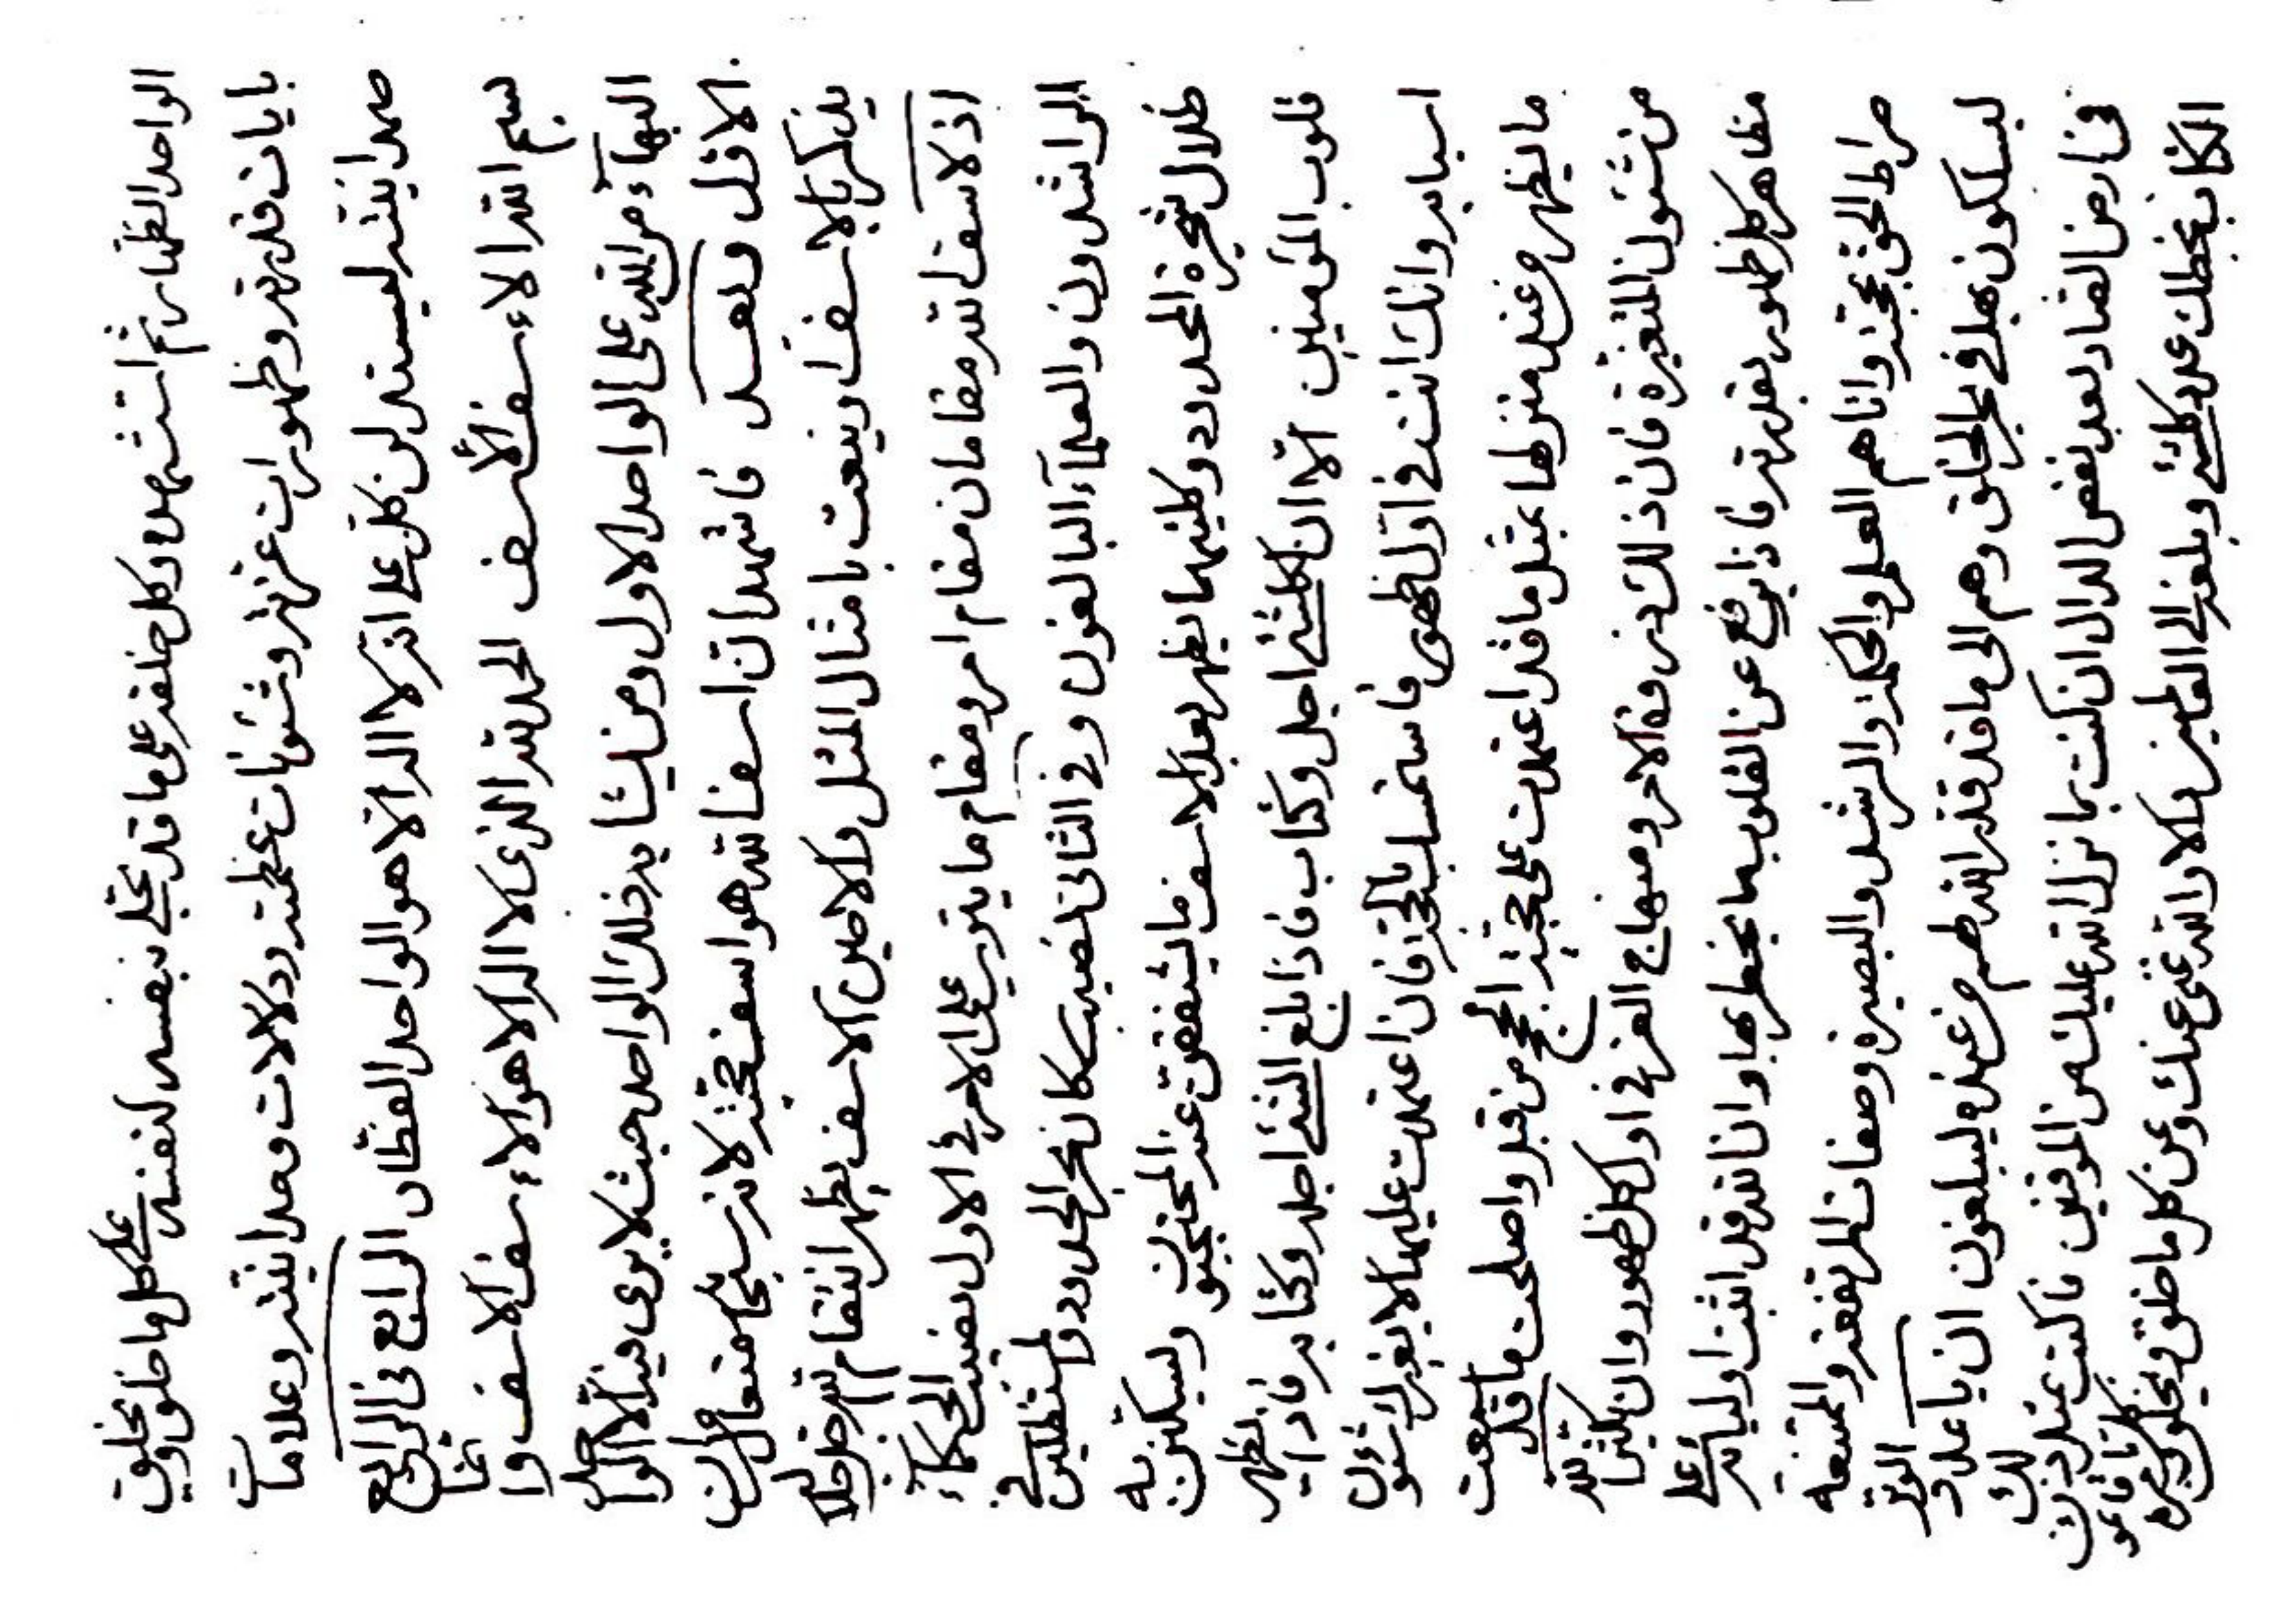 الواحد الظهار ثم استشهده وكل خلقه على ما قد تجلى بنفسه لنفسه على كل ما خلق ويخلق
بايات قدرته وظهورات عزته وشئونات عظمته ودلالات وحدانيته وعلامات
صمدانيته ليستدلن كل على انه لا اله الا هو الواحد الفطار الرابع فى الرابع
بسم الله الاءسف الأسف الحمد لله الذى لا اله الا هو الاءسف الاسف وانما
البهاء من الله على الواحد الاول ومن يشابه ذلك الواحد حيث لا يرى فيه الا الواحد
الاول وبعد فاشهد ان اسف الله هو اسف حجته لانه سبحانه متعال من ان
يذكر بالاسف او ينعت بامثال المثل ولاحين الاسف يظهر انتقام الله جل جلاله
اذ لاسف لله مقامان مقام امر ومقام ما يترتب على الامر فى الاول نصيب الحكماء
الراشدون والعلماء البالغون وفى الثانى نصيب مكان بحر الحدود والمستظلين فى
ظلال شجرة المحدود وكليهما يظهر بعد الاسف ما يشفقن عنه المحتجبون ويسكنن به
قلوب المؤمنين الا ان لكل شئ اجل وكتاب فاذا بلغ الشئ اجله وكتابه فاذا يظهر
اسبابه وانك انت فى اول الظهور فاستمسك بالحجة فان اعتمدت عليها لا يغيرك شئون
ما يظهر من عند منزلها بمثل ما قد اعتمدت على حجية الحجج من قبل واصلحت ما قد سمعت
من شئون المتغيرة فان ذلك ذروة الامر ومنهاج العز فى اول كل ظهور وان لله
مظاهر كل ظهور بقدرته فاذا يرفع عن القلوب ما يخطر بها وان الله قد اثبت اوليائه على
صراط الحق بحجته وانا هم العلم والحكمة والرشد والبصيرة وصفات المرتفعة والممتنعة
ليسلكون بهذا فى بحر الخلق وهم الى ما قد قدر الله لهم من عنده ليبلغون ان يا عدد
فى ارض القاف بعد نقص الدال ان كنت بما نزل الله عليك من الموقنين فاكتب بمثل ذلك
الكتاب بخطك عدد كلشئ وبلغه الى العالمين والا والله غنى عنك وعن كل ما خلق ويخلق